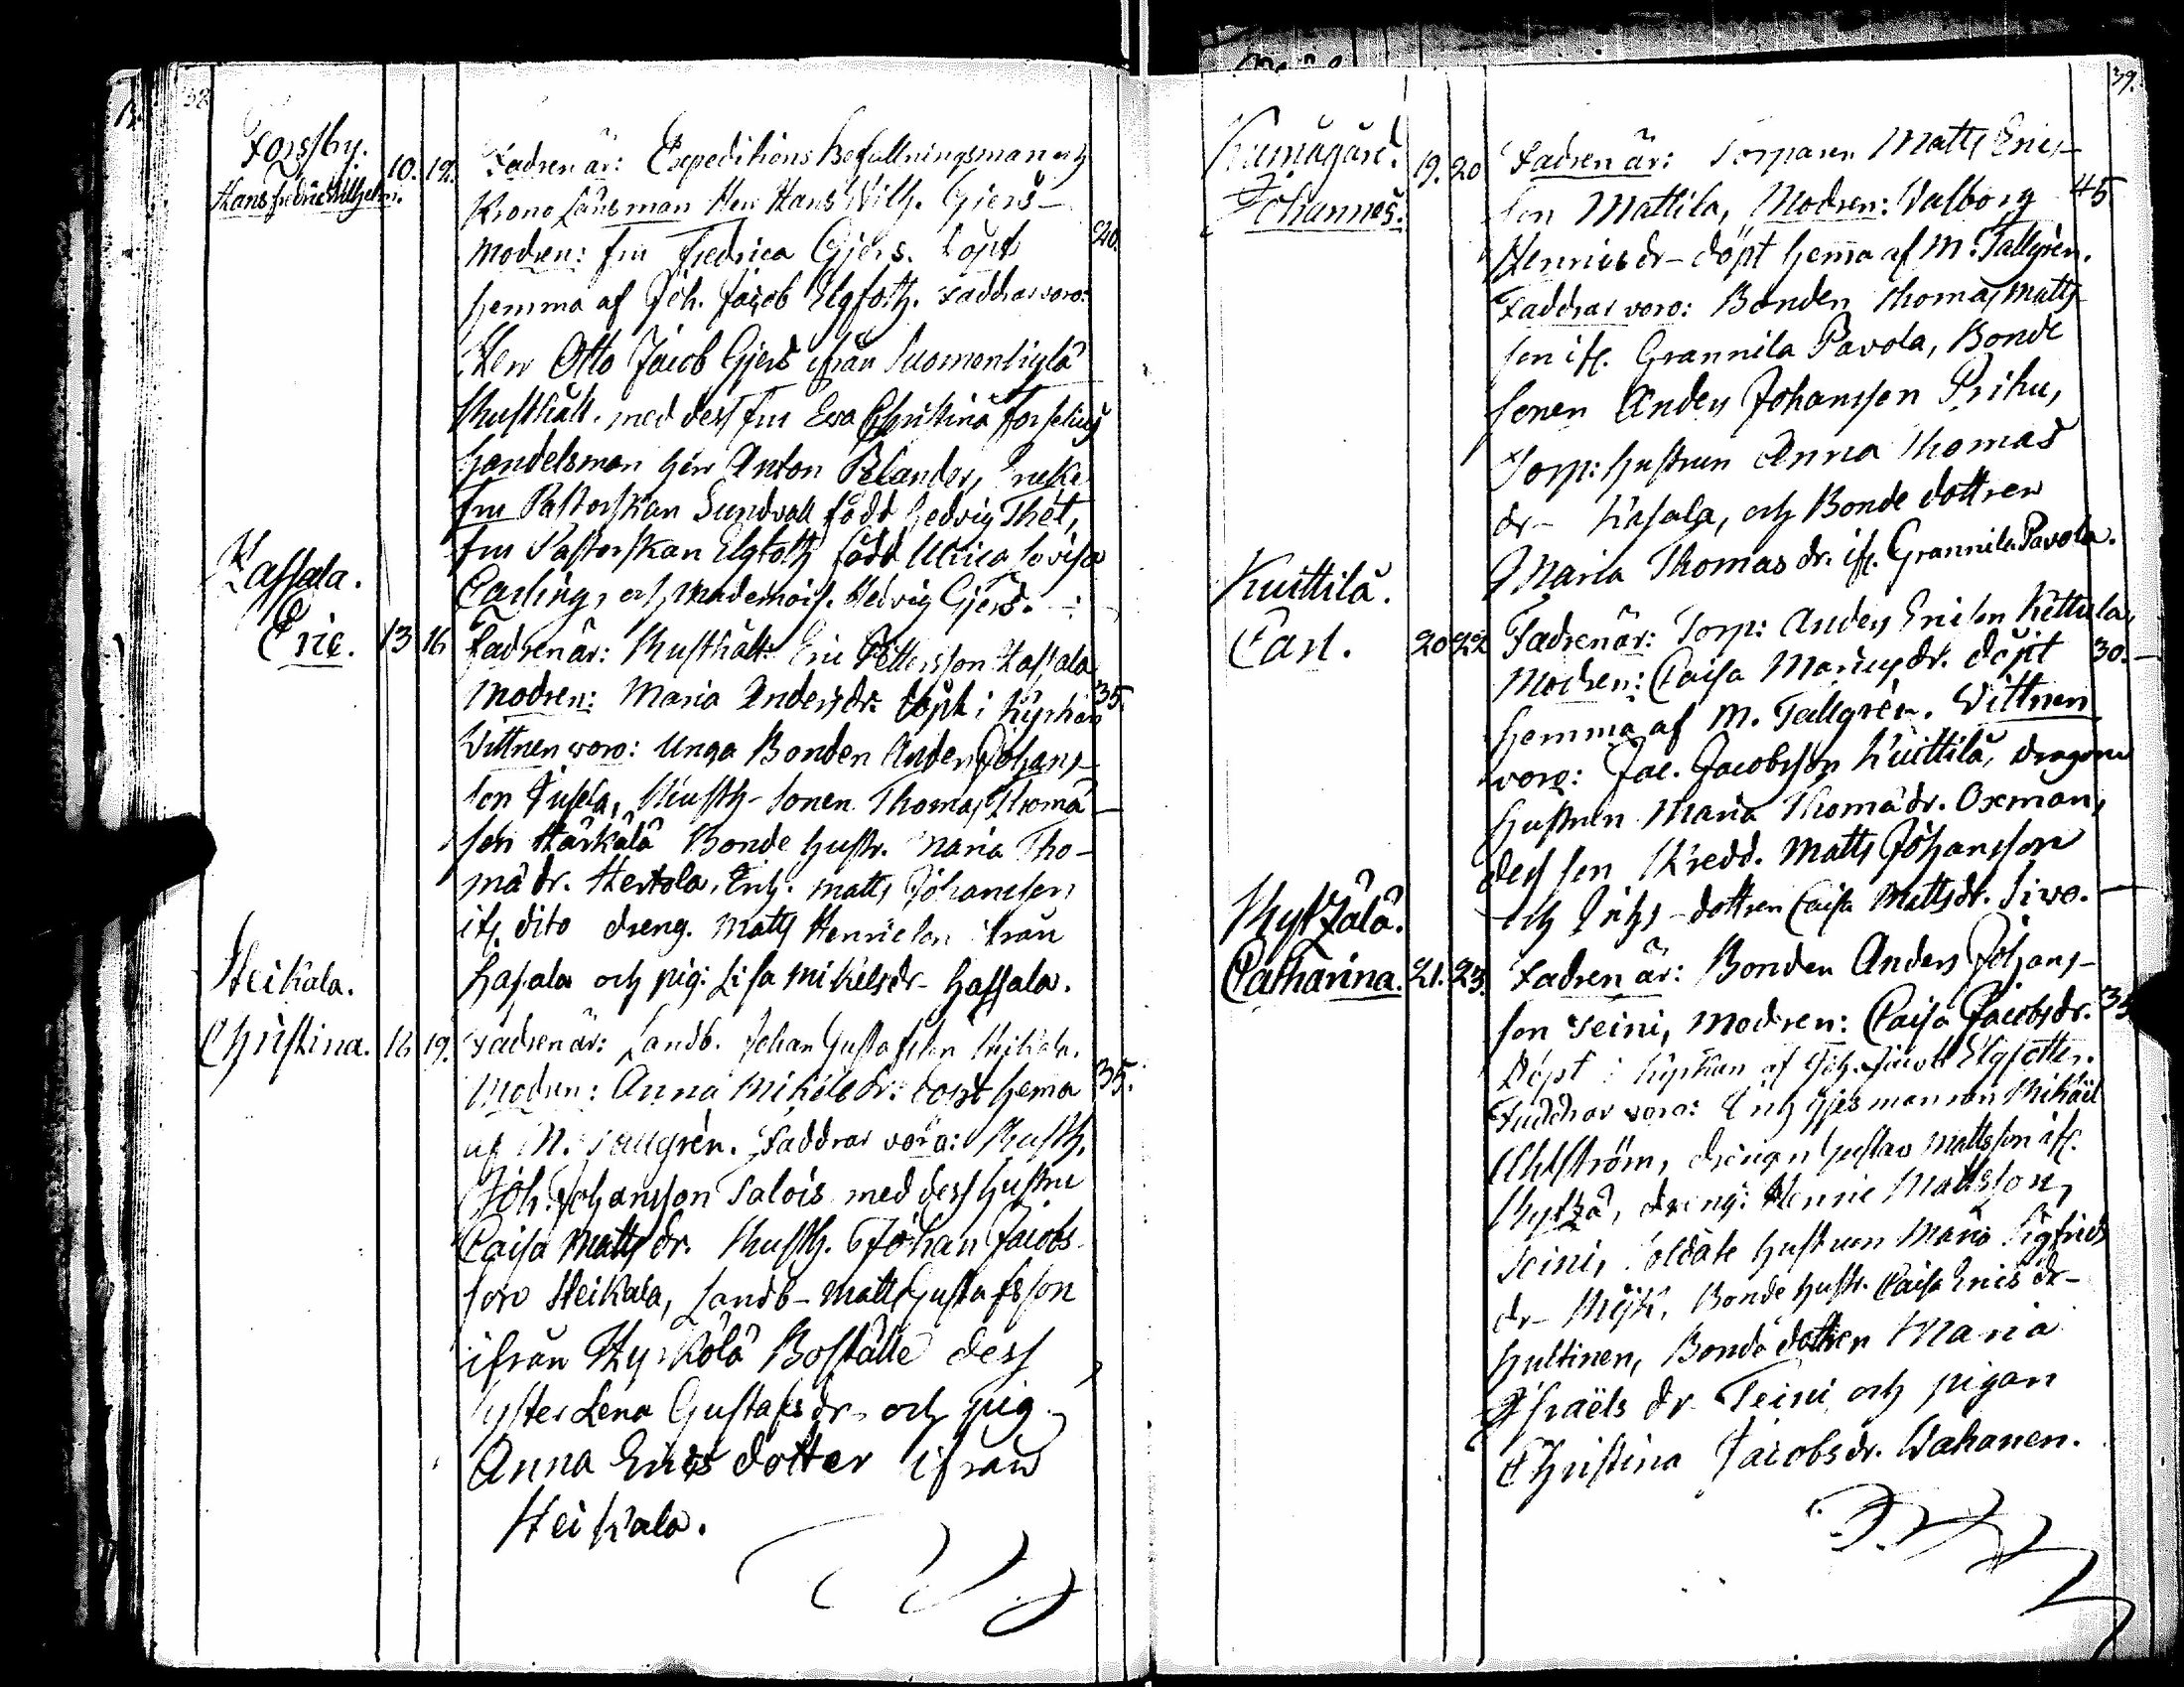 38
Forssby.
Hans Fredric Wilhelm.
10. 12. Fadren är: Expeditions Befallningsman och
Krono Länsman Herr Hans Wilh. Gjers
Modren: Fru Fredrica Gjers. Döpt 40.
hemma af Joh. Jacob Elgfoth. Faddrar voro:
Herr Otto Jacob Gjers ifrån Suomenkylä
Rusthåll. med dess Fru Eva Christina Forselius
Handelsman Herr Anton Pelander, Enke
Fru Pastorskan Sundvall född Hedvig Thét,
Fru Pastorskan Elgfoth född Ulrica Lovisa
Carling, och Mademois. Hedvig Gjers.
Hassala.
Eric. 13 16 Fadren är: Rusthåll. Eric Pettersson Hassala
Modren: Maria Andersdr. döpt i Kyrkan 35.
Vittnen voro: Unga Bonden Anders Johans-
son Jusela, Rusth-sonen Thomas Thoma
son Härkälä Bonde hustr. Maria Tho-
mä dr. Hertola, Matts Johansson
if. dito dreng. Matts Henricson ifrån
Hassala och pig: Lisa Mikelsdr- Hassala.
Heikala.
Christina. 16 19. Fadren är: Landb. Johan Gustafsson Heikala.
Modren: Anna Mikelsdr: döpt hema 35.
af M. Tallgrén. Faddrar voro: Rusth.
Joh. Johansson Talois med dess hustru
Caisa Matts dr. Rusth. Johan Jacobs
son Heikala, Landb- Matts Gustafsson
ifrån Hyrkölä Boställe dess
syster Lena Gustafs dr- och pig
Anna Erics dotter ifrån
Heikala.
39.
Kumågård.
Johannes.
19. 20 Fadren är: Torparen Matts Eric-
son Mattila, Modren: Valborg 45
Henricsdr- döpt hemma af M. Tallgrén.
Faddrar voro: Bonden Thomas Matts
son if. Grannila Pavola, Bonde
sonen Anders Johansson Prihu,
Torp: hustrun Anna Thomas
dr- och Bonde dottren
Maria Thomas dr. if. Grannila Pavola.
Kuittila.
Carl. 20 22 Fadren är: Torp: Anders Ericson Kettula,
Modren: Caisa döpt 30.
hemma af M. Tallgrén. Vittnen
voro: Jac. Jacobsson Kuittila, Dragone
hustrun Maria Thomä dr. Oxman,
dess son Skredd. Matts Johansson
och dottren Caisa Mattsdr. Sivo.
Catharina. 21. 23. Fadren är: Bonden Anders Johans-
son Seini, Modren: Caisa Jacobsdr. 35
Döpt i Kyrkan af Joh. Jacob Elgfoth.
Faddrar voro: Mikäel
Ahlström, drengen Gustav Mattsson if.
dreng: Henric Mattsson,
Seini, Soldate hustrun Maria Sigfrids
dr- Bonde hustr. Caisa Erics dr-
Hultinen, Bonde dottren Maria
Israëls dr Teini och pigan
Christina Jacobsdr. Wahanen.